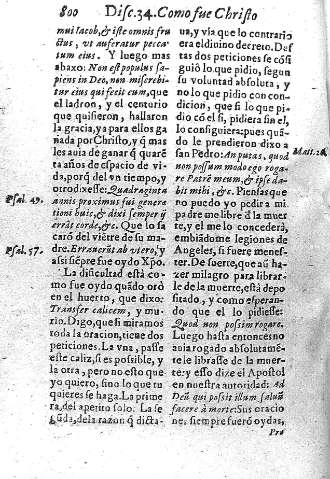 800 Disc. 34. Como fue Christo
mui Iacob, & iste omnis fru
ctus, vt auferatur pecca-
tum eius. Y luego mas
abaxo: Non est populus sa-
piens in Deo, non miserebi-
tur eius qui fecit eum, que
el ladron, y el centurio
que quisieron, hallaron
la gracia, ya para ellos ga
ñada por Christo, y q̃ mas
les auia de ganar q̃ quarẽ
ta años de espacio de vi-
da, porq̃ del vn tiempo, y
otro dixesse: Quadraginta
annis proximus fui genera
tioni huic, & dixi semper ij
errãt corde, &c. Que lo sa
carõ del viẽtre de su ma-
dre. Errauerũt ab vtero, y
assi siẽpre fue oydo Xpo.
La dificultad está co-
mo fue oydo quãdo orò
en el huerto, que dixo:
Transfer calicem, y mu-
rio. Digo, que si miramos
toda la oracion, tiene dos
peticiones. La vna, passe
este caliz, si es possible, y
la otra, pero no esto que
yo quiero, sino lo que tu
quieres se haga. La prime
ra, del apetito solo. La se
gũda, de la razon q̃ dicta-
Psal. 49.
Psal. 57.
ua, y via que lo contrario
era el diuino decreto. Des
tas dos peticiones se cõsi
guiò lo que pidio, segun
su voluntad absoluta, y
no lo que pidio con con-
dicion, que si lo que pi-
dio cõ el si, pidiera sin el,
lo consiguiera: pues quã-
do le prendieron dixo a
san Pedro: An putas, quod
non possum modo ego roga-
re Patrẽ meum, & ipse da-
bit mihi, &c. Piensas que
no puedo yo pedir a mi
padre me libre d̃ la muer
te, y el me lo concederà,
embiãdome legiones de
Angeles, si fuere menes-
ter. De suerte, que aũ ha-
zer milagro para librar-
le de la muerte, està depo
sitado, y como esperan-
do que el lo pidiesse:
Quod non possim rogare.
Luego hasta entonces no
auia rogado absolutamẽ-
te le librasse de la muer-
te: y esso dize el Apostol
en nuestra autoridad: Ad
Deũ qui possit illum saluũ
facere à morte: Sus oracio
nes, siempre fuerõ oydas,
Pro
Matt. 26